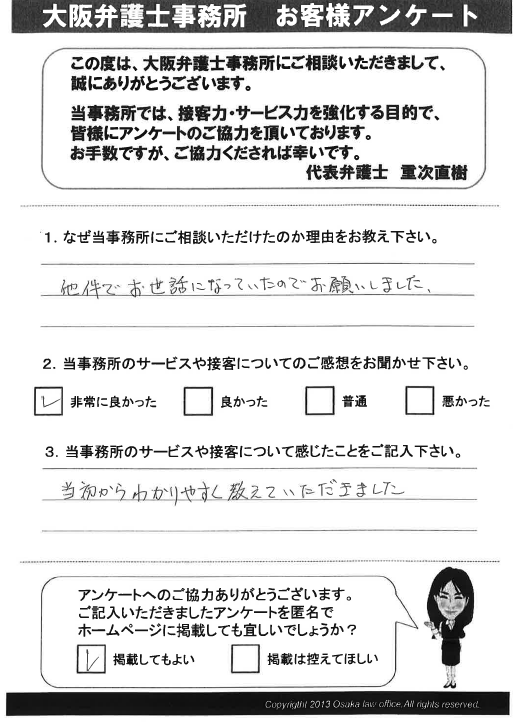 大阪弁護士事務所　お客様アンケート
この度は、大阪弁護士事務所にご相談いただきまして、
誠にありがとうございます。
当事務所では、接客力・サービス力を強化する目的で、
皆様にアンケートのご協力を頂いております。
お手数ですが、ご協力くだされば幸いです。
代表弁護士　重次直樹
1. なぜ当事務所にご相談いただけたのか理由をお教え下さい。
他件でお世話になっていたのでお願いしました、
2. 当事務所のサービスや接客についてのご感想をお聞かせ下さい。
非常に良かった　良かった　普通　悪かった
3. 当事務所のサービスや接客について感じたことをご記入下さい。
当初からわかりやすく教えていただきました
アンケートへのご協力ありがとうございます。
ご記入いただきましたアンケートを匿名で
ホームページに掲載しても宜しいでしょうか？
掲載してもよい　掲載は控えてほしい
Copyright 2013 Osaka law office. All rights reserved.